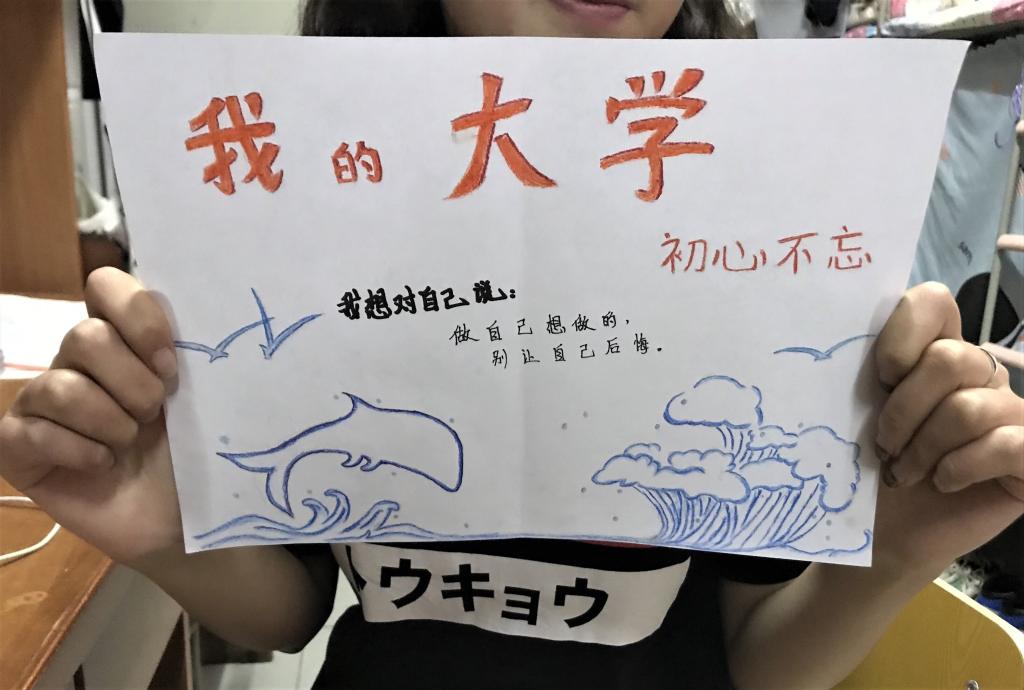 我的大学
初心不忘
我想对自己说:
做自己想做的,
别让自己后悔。
ウキョウ